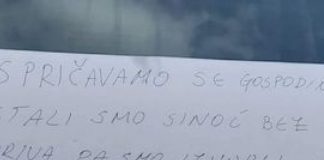 S PRIČAVAMO SE GOSPODIN
STALI SMO SINOĆ BEZ
RIVA DA SMO